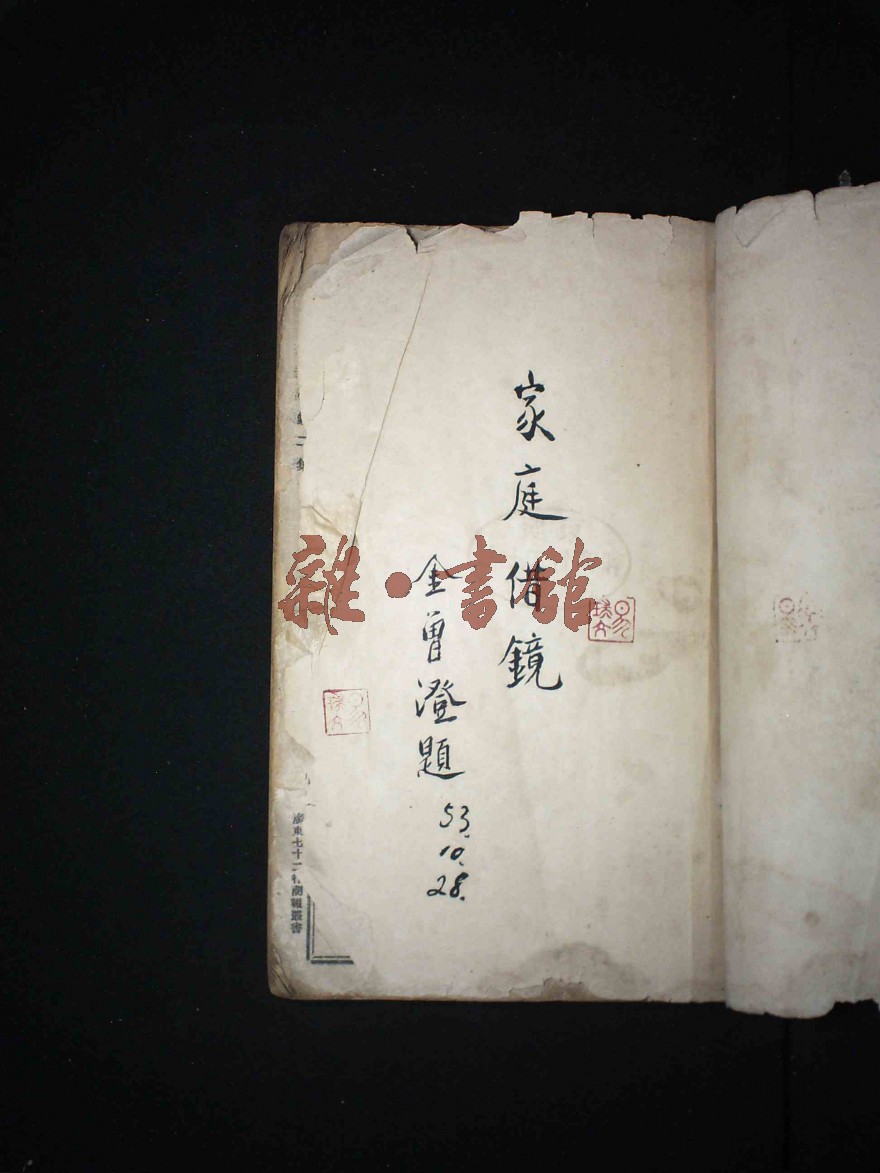 家庭借鏡
金曾澄題
53.
10.
28.
廣東七十二行商報叢書
雜·書館